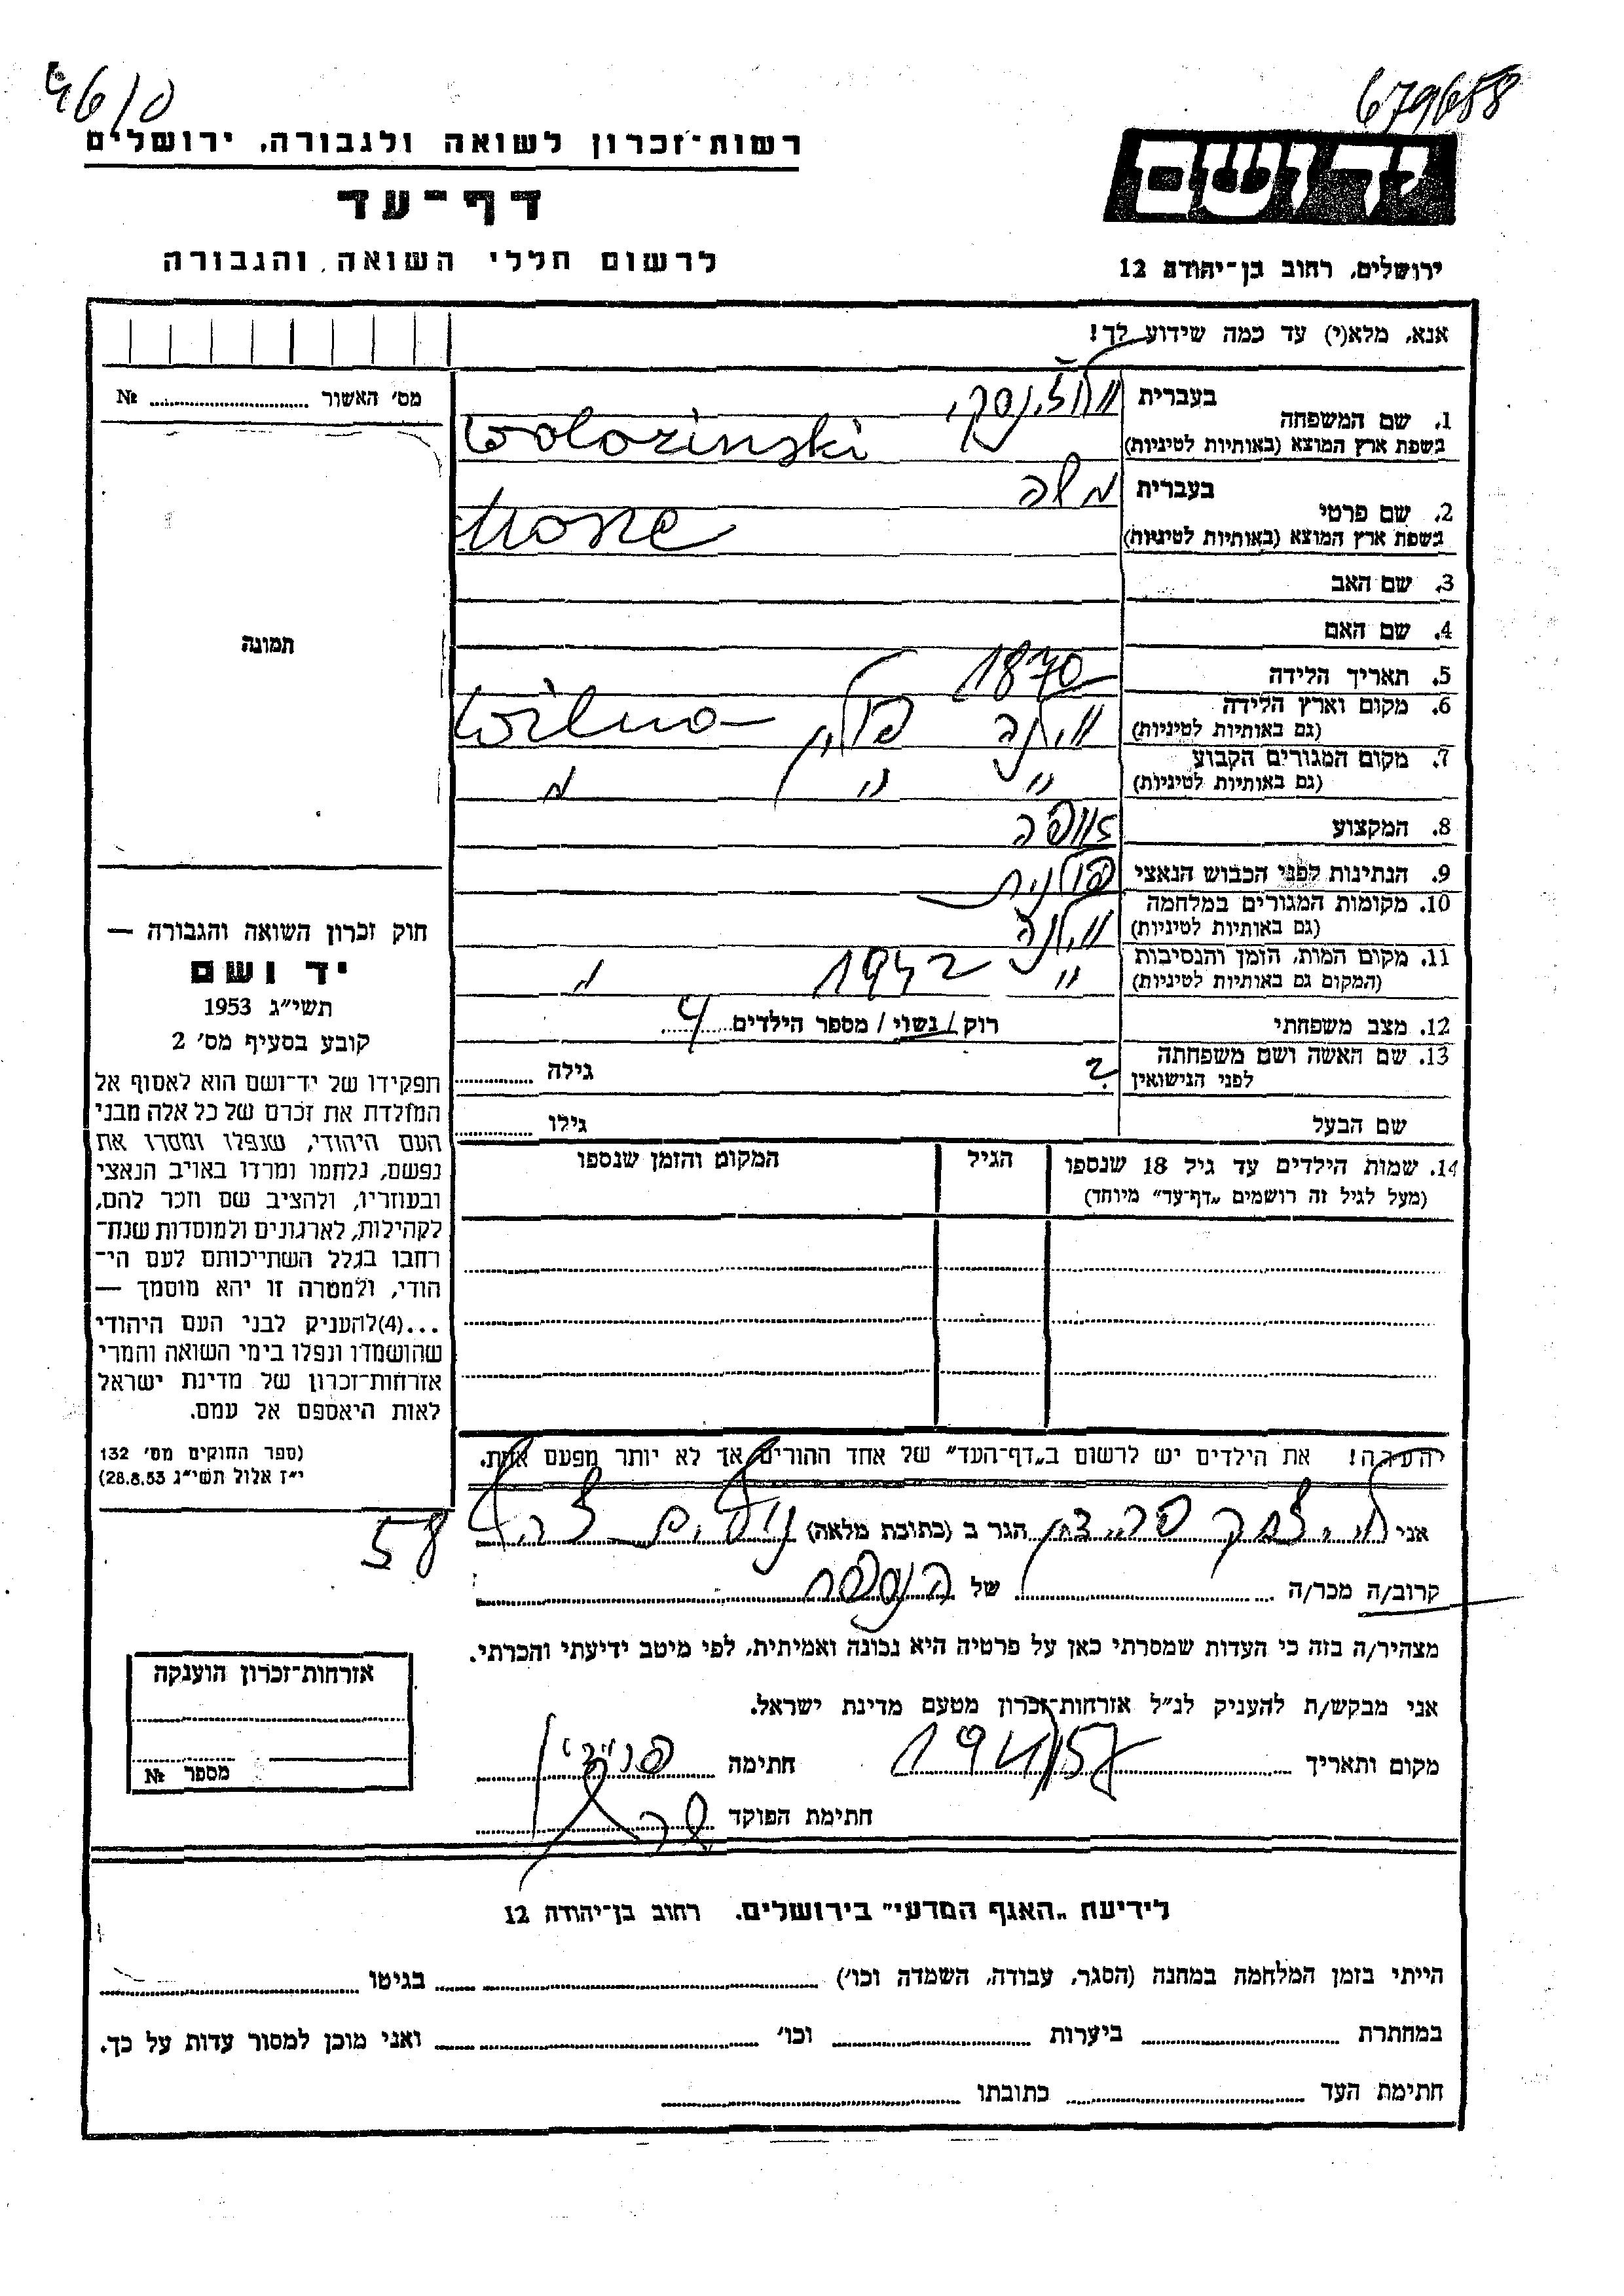 4610
679658
רשות־זכרון לשואה ולגבורה, ירושלים
דף־עד
לרשום חללי השואה והגבורה
ידושם
ירושלים, רחוב בן־יהודה 12
אנא, מלא(י) עד כמה שידוע לך!
מס׳ האשור № ..........
1. שם המשפחה
בעברית וולוז'ינסקי
בשפת ארץ המוצא (באותיות לטיניות) Wolozinski
2. שם פרטי
בעברית משה
בשפת ארץ המוצא (באותיות לטיניות) Mosze
3. שם האב
4. שם האם
תמונה
5. תאריך הלידה 1870
6. מקום וארץ הלידה (גם באותיות לטיניות) ווילנה פולין Wilno
7. מקום המגורים הקבוע (גם באותיות לטיניות) " " "
8. המקצוע אופה
9. הנתינות לפני הכבוש הנאצי פולנית
10. מקומות המגורים במלחמה (גם באותיות לטיניות) ווילנה
11. מקום המות, הזמן והנסיבות (המקום גם באותיות לטיניות) " 1942 "
12. מצב משפחתי רוק / נשוי / מספר הילדים 4
13. שם האשה ושם משפחתה לפני הנישואין ? גילה
שם הבעל גילו
14. שמות הילדים עד גיל 18 שנספו
(מעל לגיל זה רושמים „דף־עד״ מיוחד)
הגיל
המקום והזמן שנספו
חוק זכרון השואה והגבורה —
יד ושם
תשי״ג 1953
קובע בסעיף מס׳ 2
תפקידו של יד־ושם הוא לאסוף אל
המולדת את זכרם של כל אלה מבני
העם היהודי, שנפלו ומסרו את
נפשם, נלחמו ומרדו באויב הנאצי
ובעוזריו, ולהציב שם וזכר להם,
לקהילות, לארגונים ולמוסדות שנח־
רבו בגלל השתייכותם לעם הי־
הודי, ולמטרה זו יהא מוסמך —
...(4)להעניק לבני העם היהודי
שהושמדו ונפלו בימי השואה והמרי
אזרחות־זכרון של מדינת ישראל
לאות היאספם אל עמם.
(ספר החוקים מס׳ 132
י״ז אלול תשי״ג 28.8.53)
הערה! את הילדים יש לרשום ב„דף־העד״ של אחד ההורים אך לא יותר מפעם אחת.
אני הגר ב (כתובת מלאה) 58
קרוב/ה מכר/ה של
מצהיר/ה בזה כי העדות שמסרתי כאן על פרטיה היא נכונה ואמיתית, לפי מיטב ידיעתי והכרתי.
אני מבקש/ת להעניק לנ״ל אזרחות־זכרון מטעם מדינת ישראל.
מקום ותאריך חתימה
חתימת הפוקד
אזרחות־זכרון הוענקה
מספר №
לידיעת „האגף המדעי״ בירושלים, רחוב בן־יהודה 12
הייתי בזמן המלחמה במחנה (הסגר, עבודה, השמדה וכו׳) בגיטו
במחתרת ביערות וכו׳ ואני מוכן למסור עדות על כך.
חתימת העד כתובתו